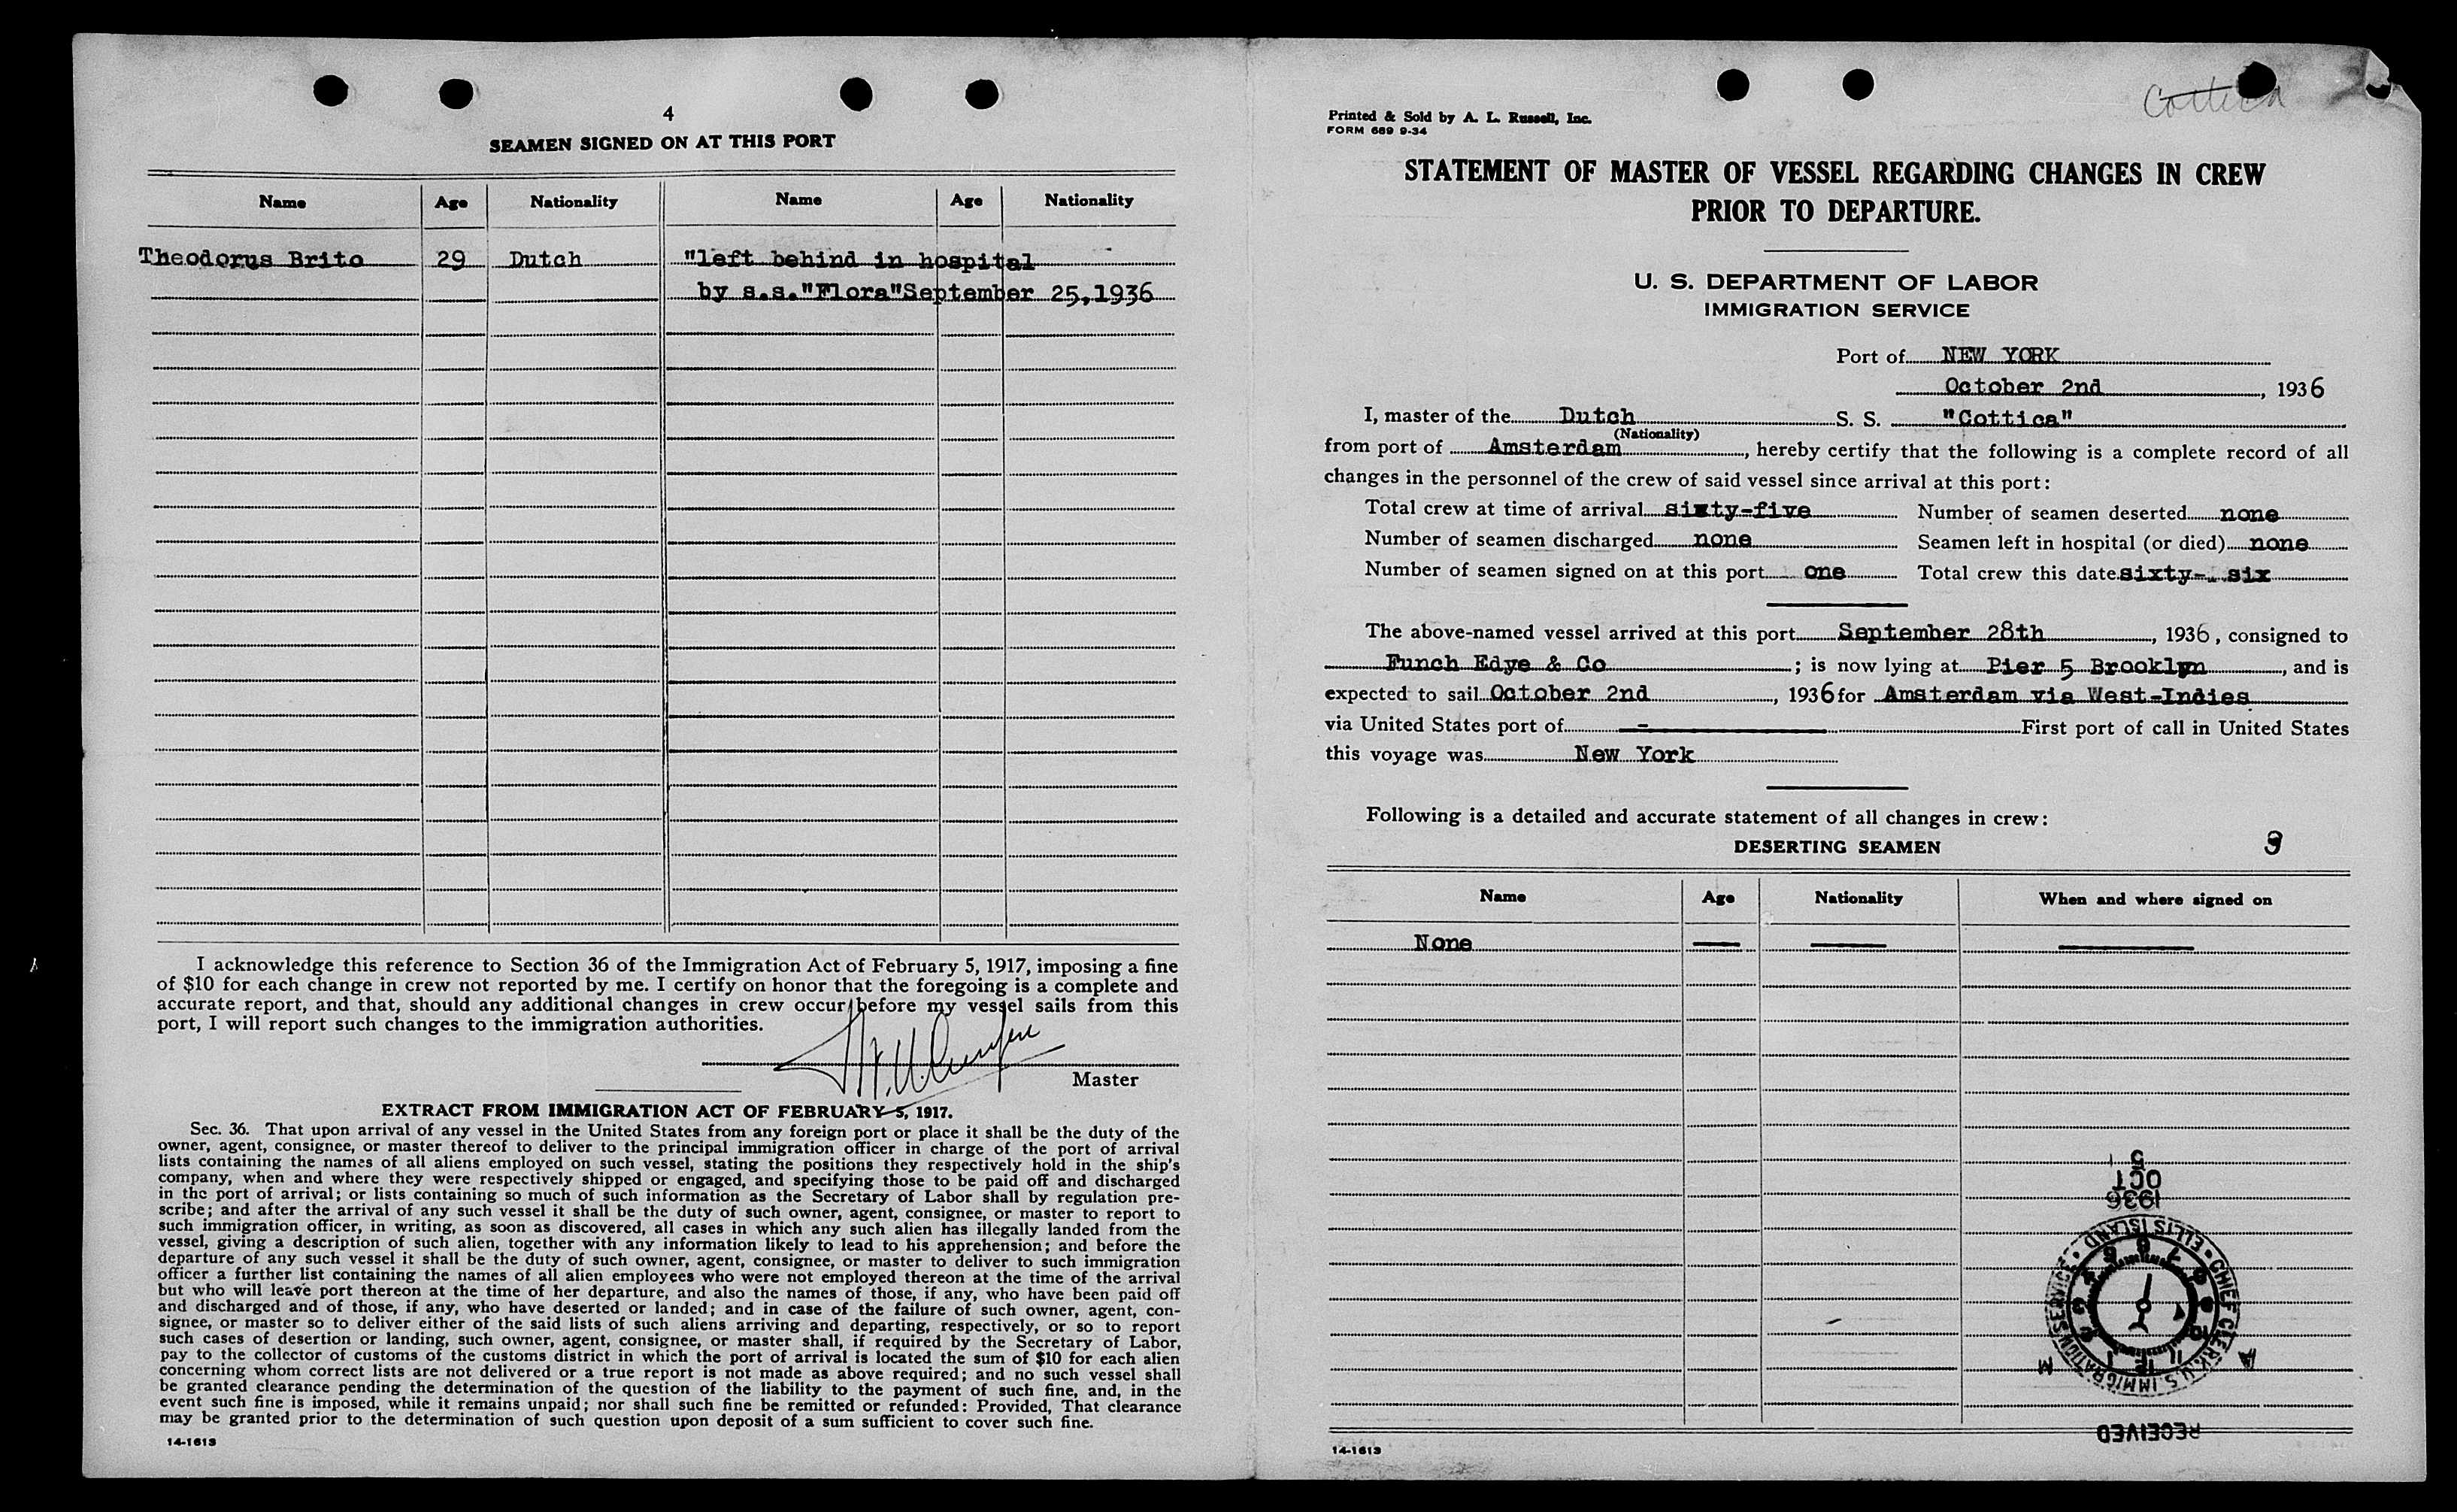 4
SEAMEN SIGNED ON AT THIS PORT
Name Age Nationality Name Age Nationality
Theodorus Brito 29 Dutch "left behind in hospital
by s.s."Flora"September 25,1936
I acknowledge this reference to Section 36 of the Immigration Act of February 5, 1917, imposing a fine
of $10 for each change in crew not reported by me. I certify on honor that the foregoing is a complete and
accurate report, and that, should any additional changes in crew occur before my vessel sails from this
port, I will report such changes to the immigration authorities.
Master
EXTRACT FROM IMMIGRATION ACT OF FEBRUARY 5, 1917.
Sec. 36. That upon arrival of any vessel in the United States from any foreign port or place it shall be the duty of the
owner, agent, consignee, or master thereof to deliver to the principal immigration officer in charge of the port of arrival
lists containing the names of all aliens employed on such vessel, stating the positions they respectively hold in the ship's
company, when and where they were respectively shipped or engaged, and specifying those to be paid off and discharged
in the port of arrival; or lists containing so much of such information as the Secretary of Labor shall by regulation pre-
scribe; and after the arrival of any such vessel it shall be the duty of such owner, agent, consignee, or master to report to
such immigration officer, in writing, as soon as discovered, all cases in which any such alien has illegally landed from the
vessel, giving a description of such alien, together with any information likely to lead to his apprehension; and before the
departure of any such vessel it shall be the duty of such owner, agent, consignee, or master to deliver to such immigration
officer a further list containing the names of all alien employees who were not employed thereon at the time of the arrival
but who will leave port thereon at the time of her departure, and also the names of those, if any, who have been paid off
and discharged and of those, if any, who have deserted or landed; and in case of the failure of such owner, agent, con-
signee, or master so to deliver either of the said lists of such aliens arriving and departing, respectively, or so to report
such cases of desertion or landing, such owner, agent, consignee, or master shall, if required by the Secretary of Labor,
pay to the collector of customs of the customs district in which the port of arrival is located the sum of $10 for each alien
concerning whom correct lists are not delivered or a true report is not made as above required; and no such vessel shall
be granted clearance pending the determination of the question of the liability to the payment of such fine, and, in the
event such fine is imposed, while it remains unpaid; nor shall such fine be remitted or refunded: Provided, That clearance
may be granted prior to the determination of such question upon deposit of a sum sufficient to cover such fine.
14-1613
Cottica
Printed & Sold by A. L. Russell, Inc.
FORM 689 9-34
STATEMENT OF MASTER OF VESSEL REGARDING CHANGES IN CREW
PRIOR TO DEPARTURE.
U. S. DEPARTMENT OF LABOR
IMMIGRATION SERVICE
Port of NEW YORK
October 2nd, 1936
I, master of the Dutch S. S. "Cottica"
(Nationality)
from port of Amsterdam, hereby certify that the following is a complete record of all
changes in the personnel of the crew of said vessel since arrival at this port:
Total crew at time of arrival sixty-five Number of seamen deserted none
Number of seamen discharged none Seamen left in hospital (or died) none
Number of seamen signed on at this port one Total crew this date sixty- six
The above-named vessel arrived at this port September 28th, 1936, consigned to
Funch Edye & Co; is now lying at Pier 5 Brooklyn, and is
expected to sail October 2nd, 1936 for Amsterdam via West-Indies
via United States port of - First port of call in United States
this voyage was New York
Following is a detailed and accurate statement of all changes in crew:
DESERTING SEAMEN
9
Name Age Nationality When and where signed on
None
RECEIVED
A M
CHIEF CLERK, U.S. IMMIGRATION SERVICE • ELLIS ISLAND •
1936
OCT
5
14-1613